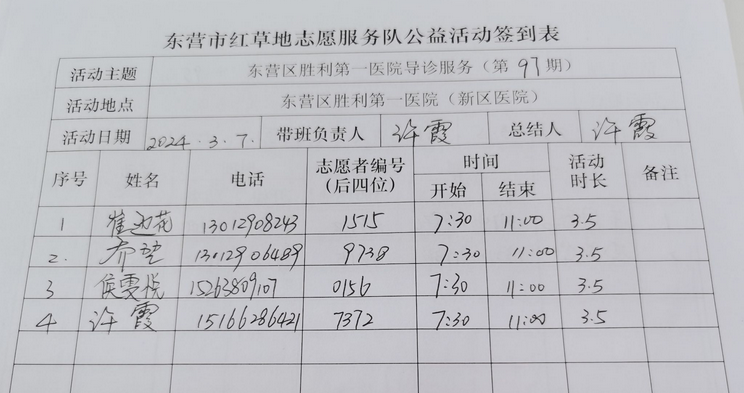 东营市红草地志愿服务队公益活动签到表
活动主题 东营区胜利第一医院导诊服务（第97期）
活动地点 东营区胜利第一医院（新区医院）
活动日期 2024.3.7. 带班负责人 许霞 总结人 许霞
序号 姓名 电话 志愿者编号（后四位） 时间 开始 结束 活动时长 备注
1 崔 花 13012908243 1515 7:30 11:00 3.5
2. 乔 13012906489 9738 7:30 11:00 3.5
3 侯雯悦 15263809107 0156 7:30 11:00 3.5
4 许霞 15166286421 7372 7:30 11:00 3.5